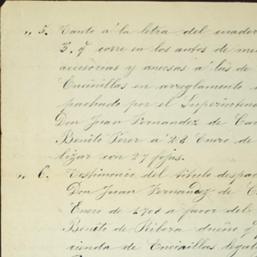 " 5. Tanto á la letra del cuader
3. q corre en los autos de me
accesorias y anexas á las de
Encinillas en arreglamento
pachado por el Superinten
Don Juan Fernandez de Ca
Benito Perez á 28 Enero de
lizar con 27 fojas.
" 6. Testimonio del título despa
Don Juan Fernandez de C
Enero de 1700 a favor del
Benito de Ribera dueño q
cienda de Encinillas legali